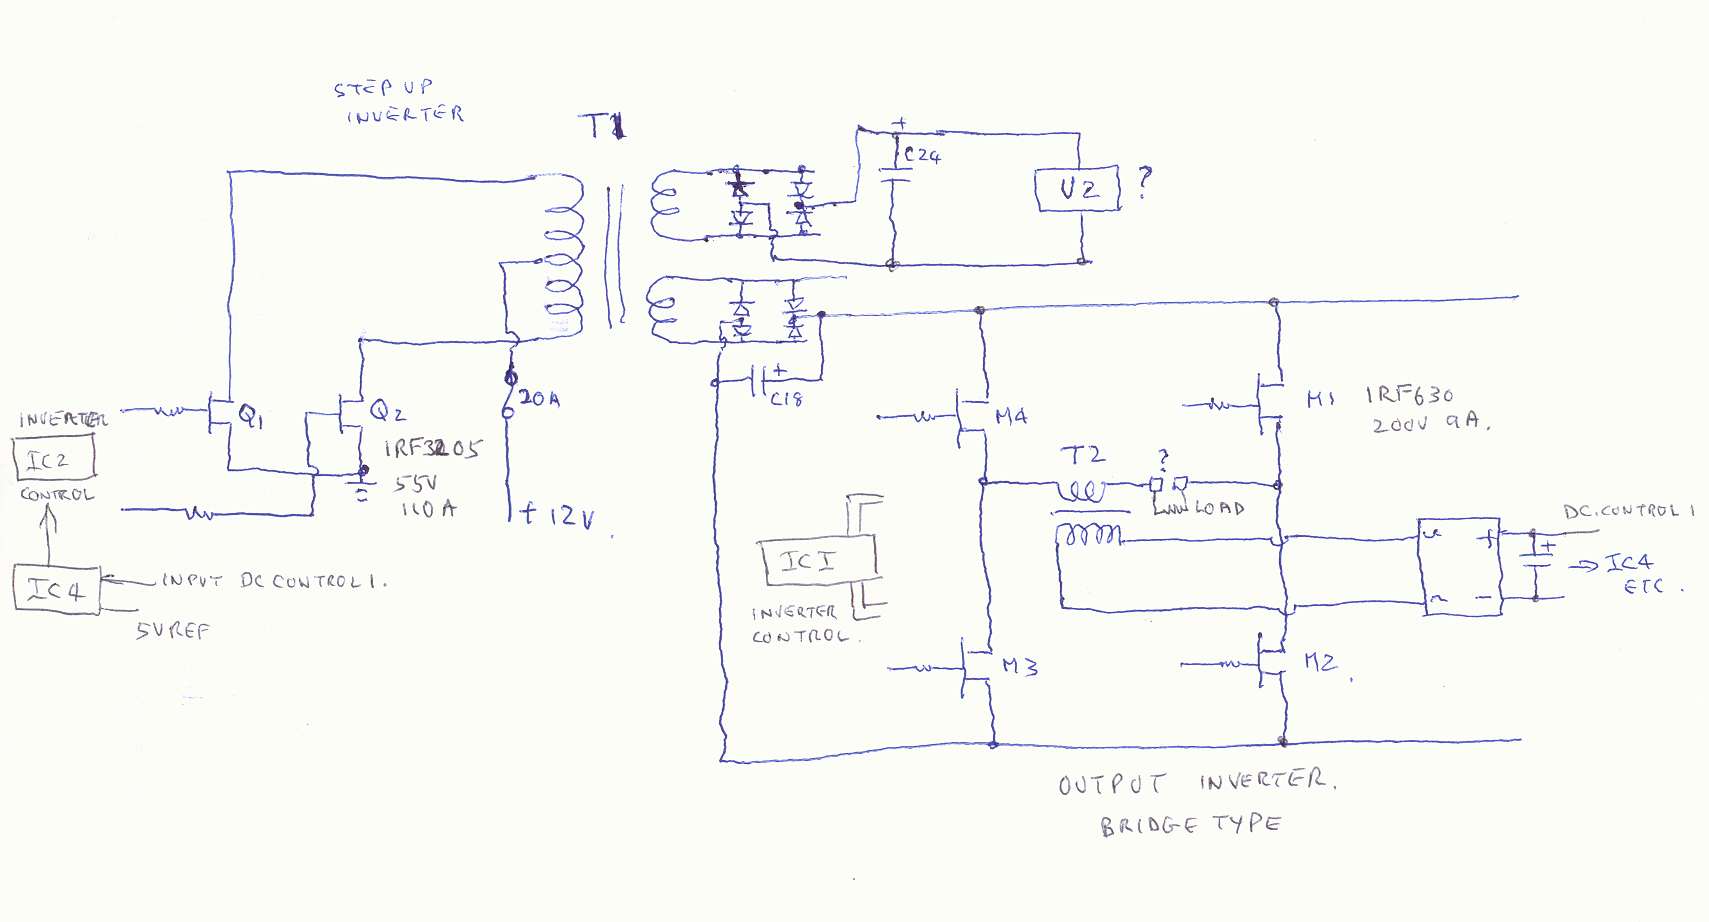 STEP UP
INVERTER
T1
+
C24
V2 ?
+
C18
INVERTER
IC2
CONTROL
Q1
Q2
IRF3205
55V
110A
20A
+ 12V.
M4
M1
IRF630
200V 9A.
T2
?
LOAD
IC4
INPUT DC CONTROL 1.
5VREF
IC1
INVERTER
CONTROL.
~ +
~ -
DC.CONTROL 1
+
IC4
ETC.
M3
M2.
OUTPUT INVERTER.
BRIDGE TYPE